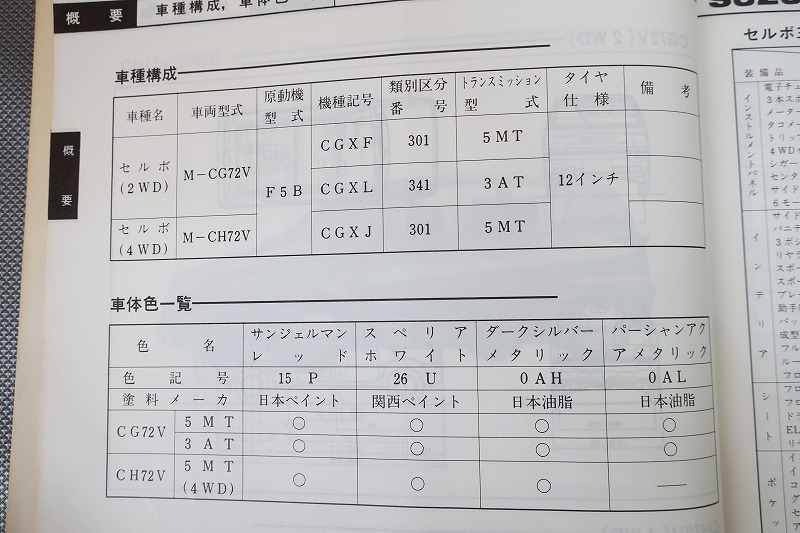 概 要
車種構成，車体色
車種構成
車種名 車両型式 原動機型式 機種記号 類別区分番号 トランスミッション型式 タイヤ仕様 備考
セルボ(2WD) M－CG72V F5B CGXF 301 5MT 12インチ
CGXL 341 3AT
セルボ(4WD) M－CH72V CGXJ 301 5MT
概要
車体色一覧
色名 サンジェルマンレッド スペリアホワイト ダークシルバーメタリック パーシャンアクアメタリック
色記号 15P 26U 0AH 0AL
塗料メーカ 日本ペイント 関西ペイント 日本油脂 日本油脂
CG72V 5MT ○ ○ ○ ○
3AT ○ ○ ○ ○
CH72V 5MT(4WD) ○ ○ ○ ──
セルボ
装備品
インストルメントパネル
電子チュ
3本スポ
メーター
タコメー
トリッ
4WDイ
シガー
センタ
サイド
6モー
インテリア
サイド
バニテ
3ポジ
リヤラ
スポー
スポー
ブレー
助手席
バッ
成型
フル
ルー
フロ
シート
フロ
フロ
ドラ
EL
リヤ
ポケッ
イ
イ
コ
グ
サ
ア